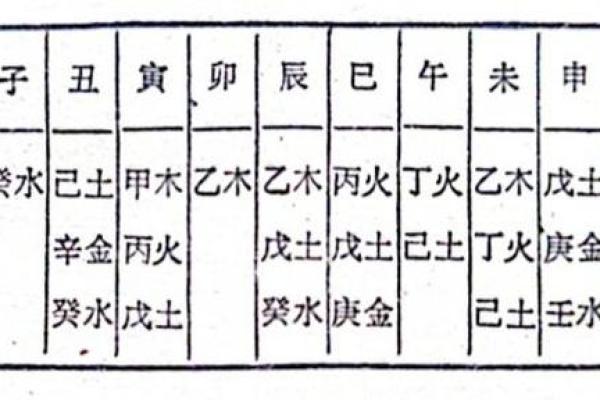 子 丑 寅 卯 辰 巳 午 未 申
癸水 己土 甲木 乙木 乙木 丙火 丁火 乙木 戊土
辛金 丙火 戊土 戊土 己土 丁火 庚金
癸水 戊土 癸水 庚金 己土 壬水